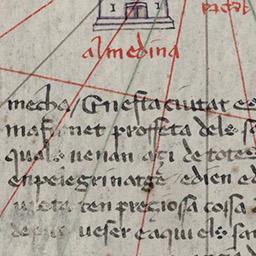 almedina
mecha / En esta ciutat es
mafumet proffeta dels sa
quals venan açi de totes
en pelegrinatge e dien q
uista ten preciossa cossa
ueser e aqui els sar